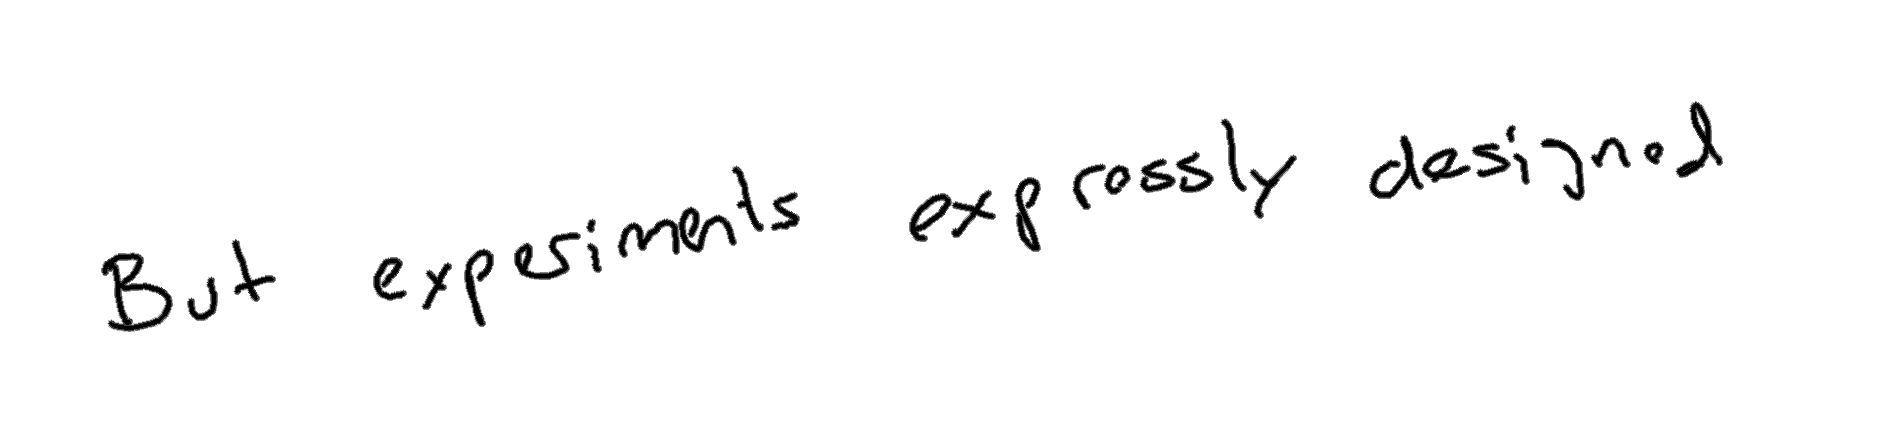 But experiments expressly designed